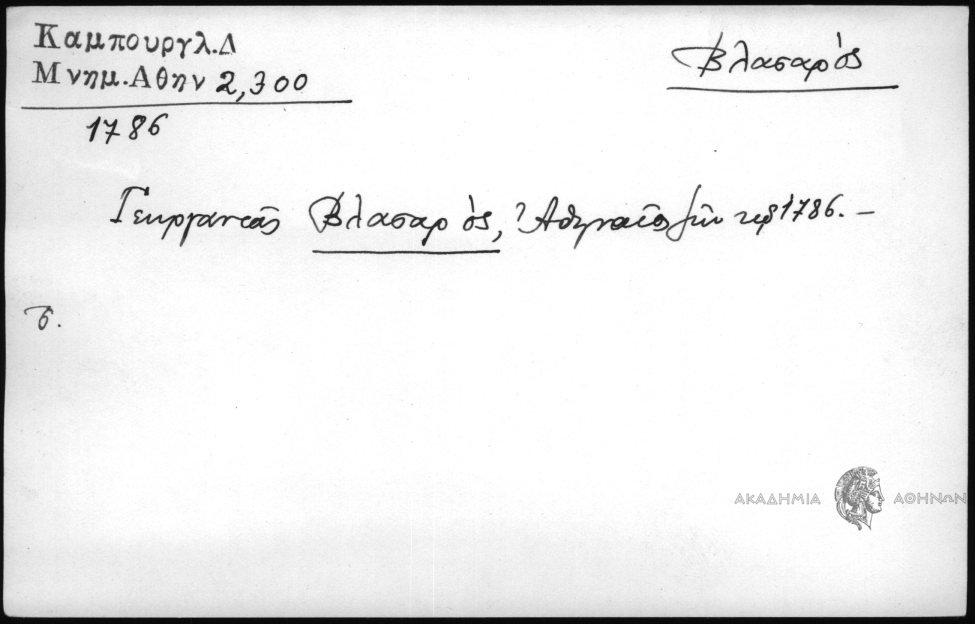 Καμπουργλ.Δ
Μνημ.Αθην 2,300
Βλασαρὸς
1786
Γεωργαντᾶς Βλασαρὸς, Ἀθηναῖος ζῶν τῷ 1786. –
ϭ.
ΑΚΑΔΗΜΙΑ ΑΘΗΝΩΝ